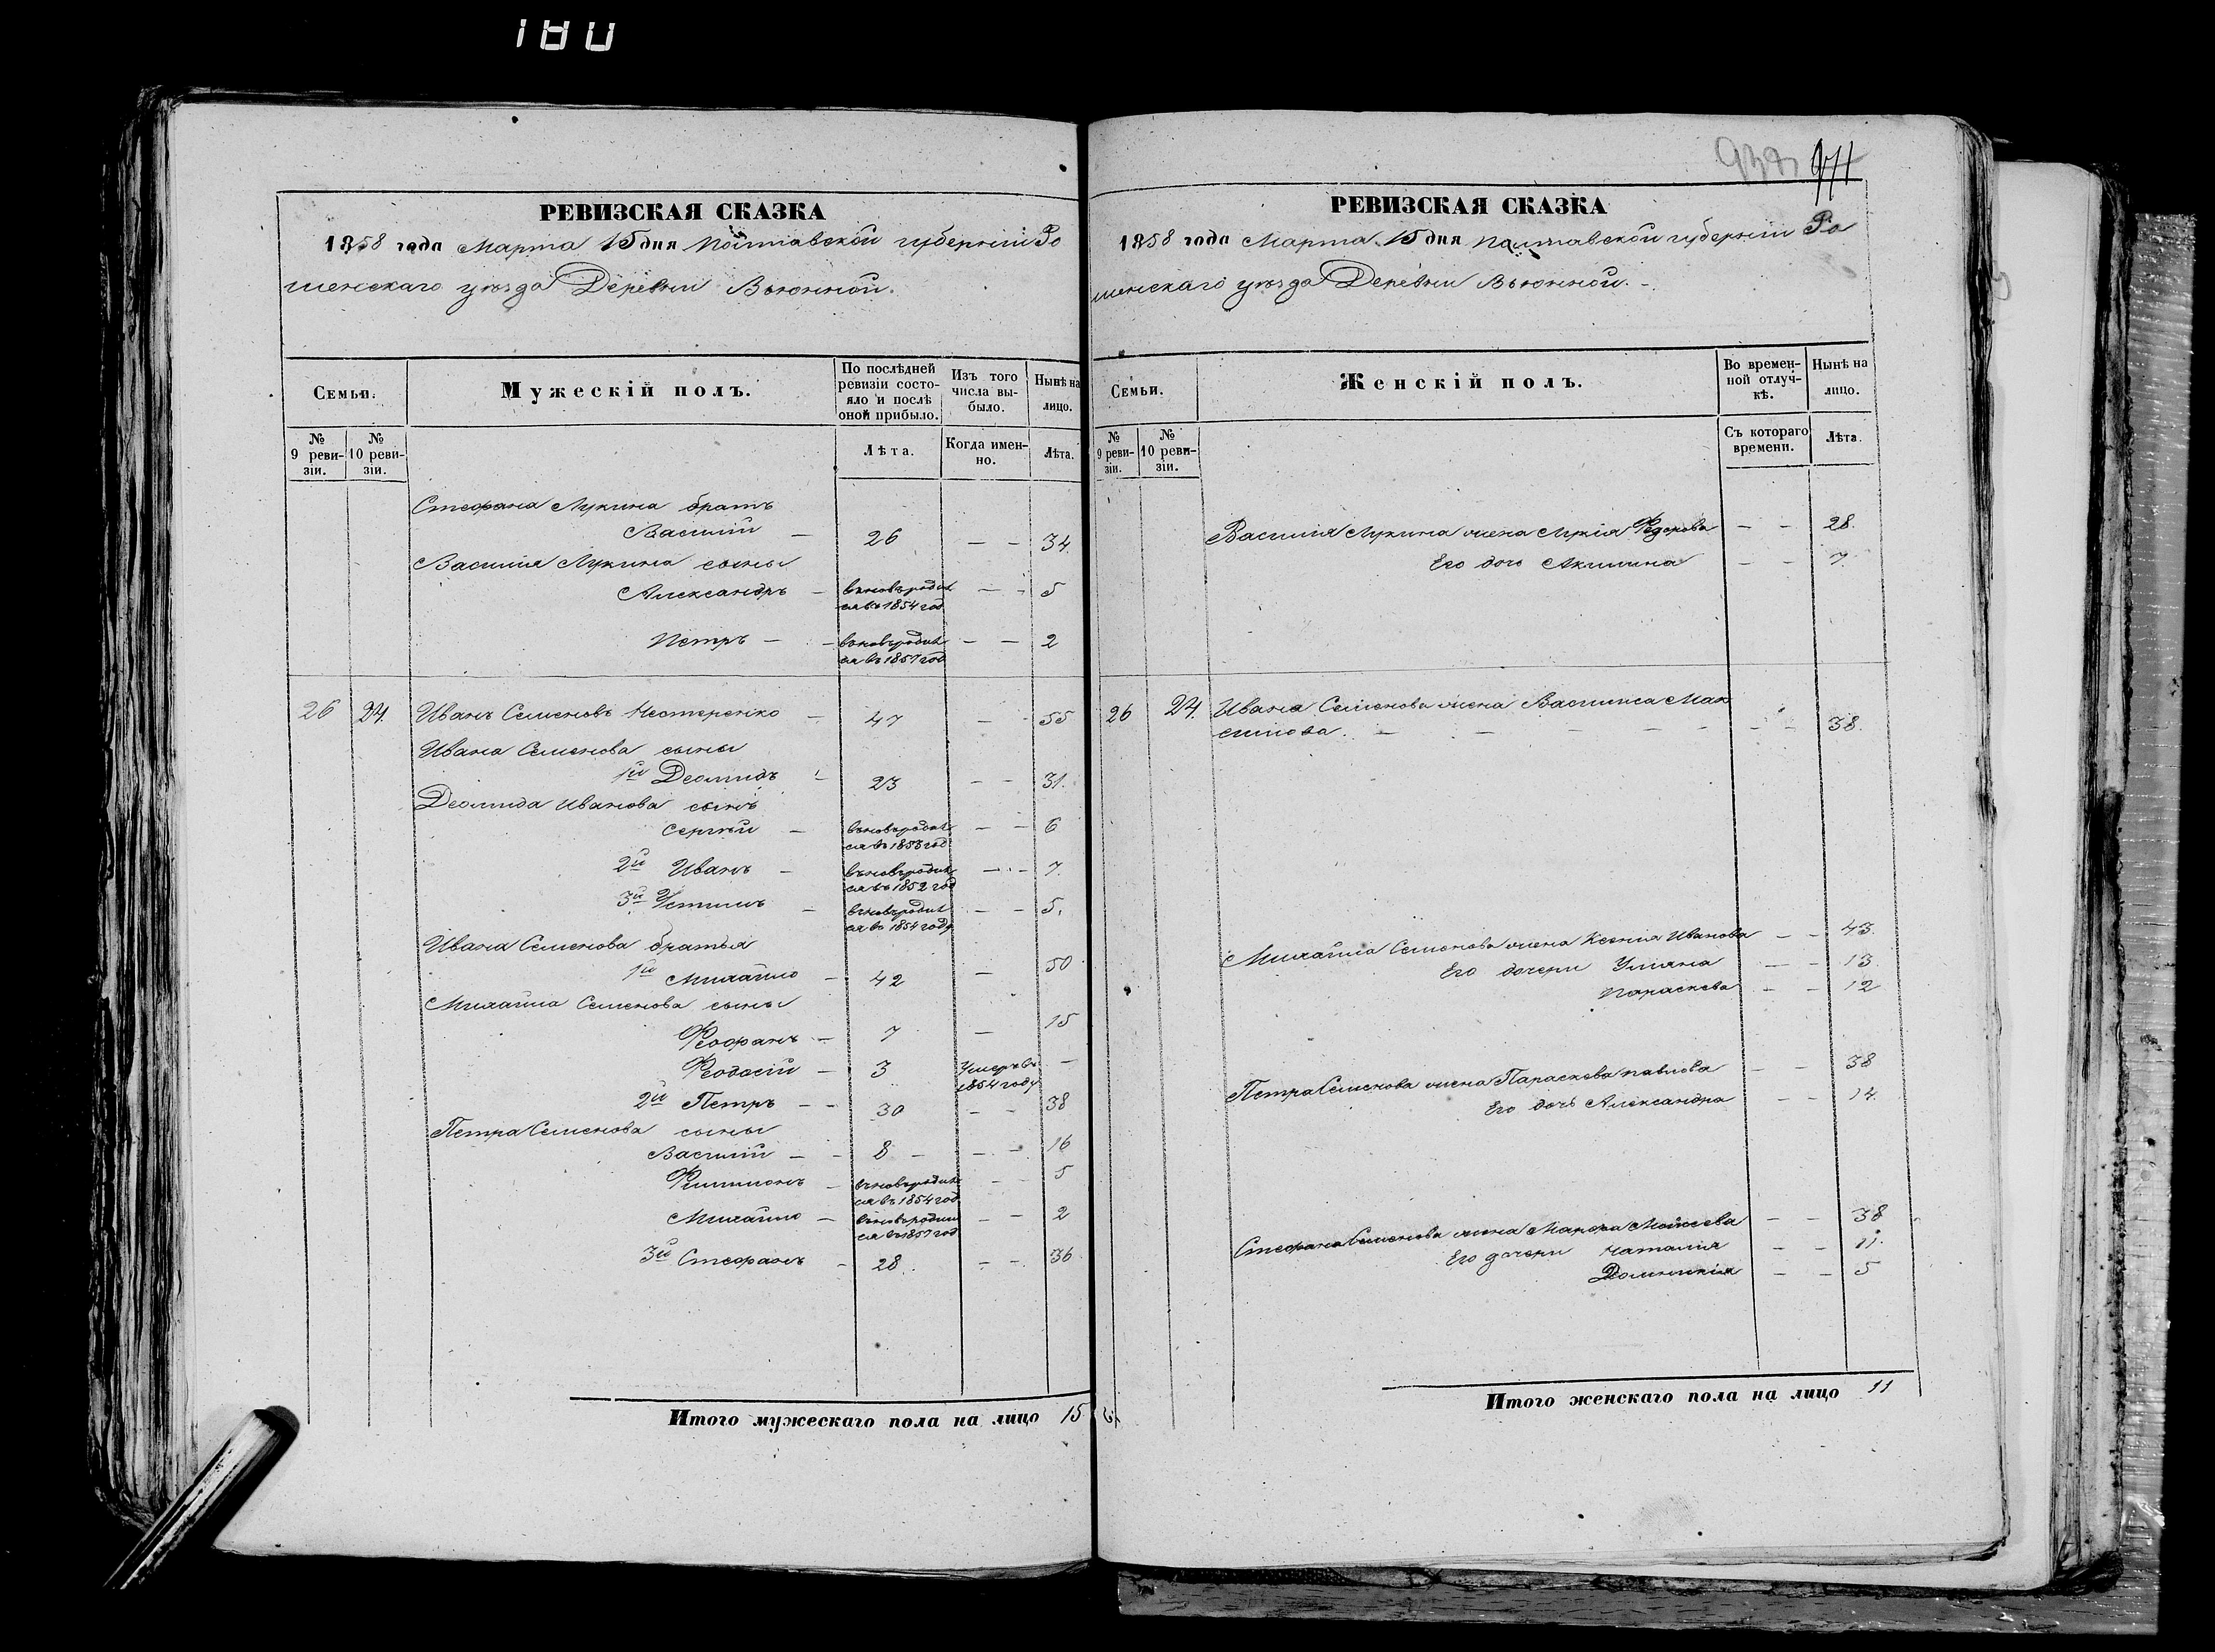 180
РЕВИЗСКАЯ СКАЗКА
1858 года Марта 15 дня Полтавской губернии Ро
менскаго уезда Деревни Вьюнной.
Семьи.
Мужескій полъ.
По послѣдней ревизіи состояло и послѣ оной прибыло.
Изъ того числа выбыло.
Нынѣ на лицо.
№ 9 ревизіи.
№ 10 ревизіи.
Лѣта.
Когда именно.
Лѣта.
Стефана Лукина братъ
Василій — 26 — — 34.
Василія Лукина сыны
Александръ — вновь родил
ся въ 1854 год — — 5
Петръ — — вновь родил
ся въ 1857 год — — 2
26 24. Иванъ Семеновъ Нестеренко — 47 — — 55
Ивана Семенова сыны
1й Деомидъ — 23 — — 31.
Деомида Иванова сынъ
Сергѣй — вновь родил
ся въ 1853 год — — 6
2й Иванъ — вновь родил
ся въ 1852 год — — 7.
3й Устимъ — вновь родил
ся въ 1854 году — — 5.
Ивана Семенова братья
1й Михайло — 42 — 50
Михайла Семенова сыны
Феофанъ — 7 — 15
Феодосій — 3 Умеръ въ
1854 году —
2й Петръ — — 30 — — 38
Петра Семенова сыны
Василій — — 8 — — — 16
Филимонъ — вновь родил
ся въ 1854 год — — 5
Михайло — вновь родил
ся въ 1857 год — — 2
3й Стефанъ — 28. — — 36
Итого мужескаго пола на лицо 15
971
РЕВИЗСКАЯ СКАЗКА
1858 года Марта 15 дня Полтавской губерніи Ро
менскаго уезда Деревни Вьюнной. —
Семьи.
Женскій полъ.
Во временной отлучкѣ.
Нынѣ на лицо.
№ 9 ревизіи.
№ 10 ревизіи.
Съ котораго времени.
Лѣта.
Василія Лукина жена Лукія Федорова — — 28.
Его дочь Акилина — — 7.
26 24. Ивана Семенова жена Василиса Мак
симова. — — — — — — — 38.
Михайла Семенова жена Ксенія Иванова — — 43.
Его дочери Уліяна — — 13.
Параскева — — 12
Петра Семенова жена Параскева Павлова — — 38
Его дочь Александра — — 14.
Стефана Семенова жена Марфа Мойсеева — — 38
Его дочери Наталія — — 11.
Доминикія — — 5
Итого женскаго пола на лицо 11